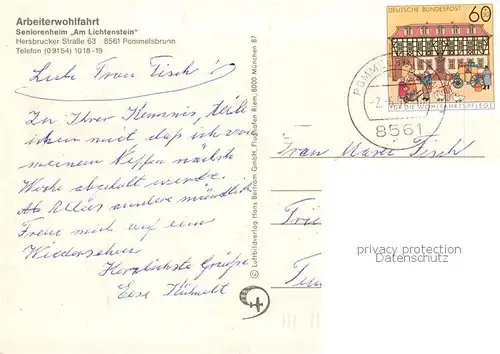 Arbeiterwohlfahrt
Seniorenheim „Am Lichtenstein"
Hersbrucker Straße 63 8561 Pommelsbrunn
Telefon (09154) 1018-19
Liebe Frau Fisch!
Zu Ihrer Kenntnis, teile
ihnen mit daß ich von
meinem Neffen nächste
Woche abgeholt werde.
Alles andere mündlich
Freue mich auf ein
Wiedersehen
Herzlichste Grüße
Else Kühnelt
© Luftbildverlag Hans Bertram GmbH, Flughafen Riem, 8000 München 87
DEUTSCHE BUNDESPOST 60
FÜR DIE WOHLFAHRTSPFLEGE
8561
Frau Marie Fisch
privacy protection
Datenschutz